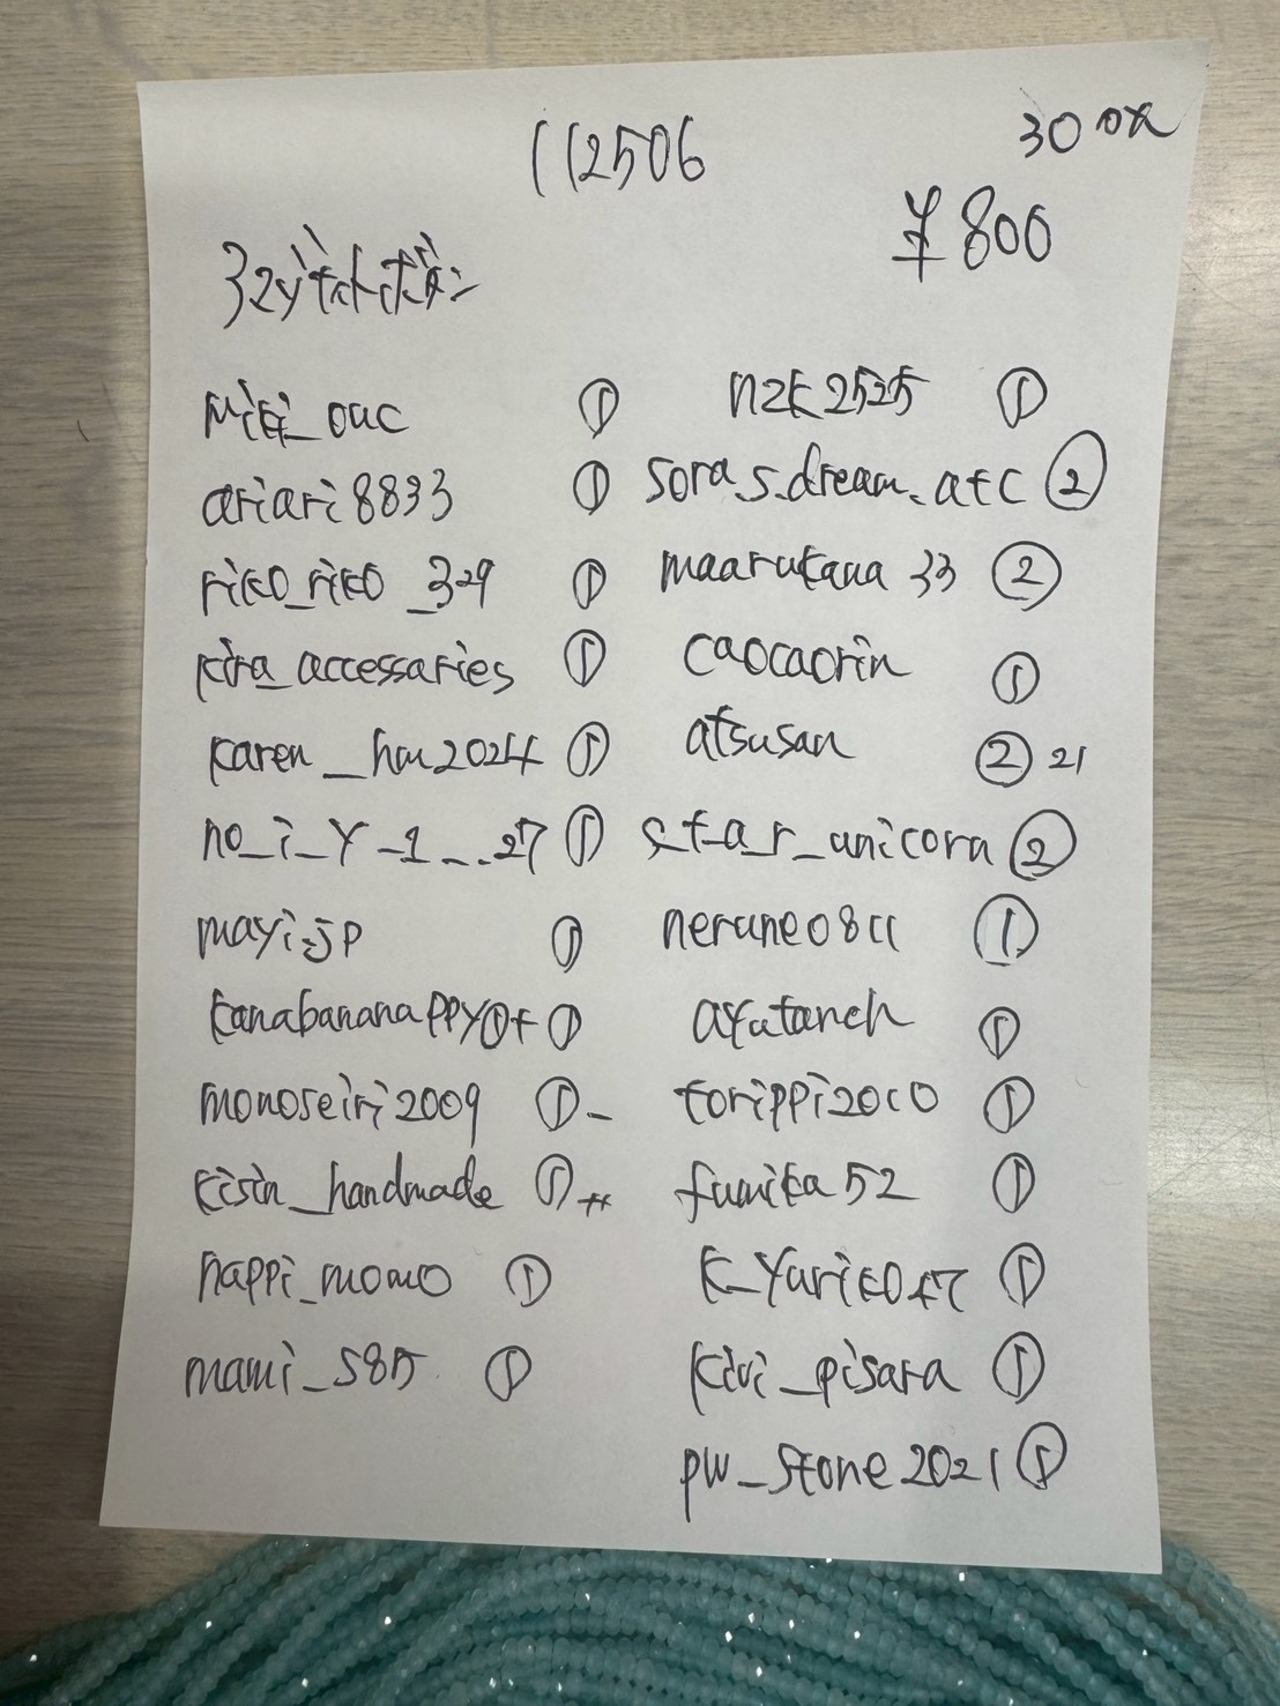 112506
300pc
¥800
miki_ouc ①
ariari8833 ①
riko_riko_329 ①
kira_accessaries ①
karen_hm2024 ①
no_i_Y_1_..27 ①
mayi.jp ①
kanabananappy@t ①
monoseiri2009 ① –
kisin_handmade ①
nappi_momo ①
mami_585 ①
nzk2525 ①
sora.s.dream.atc ②
maarukana33 ②
caocaorin ①
atsusan ② 21
s_t_a_r_unicorn ②
nerune0811 ①
ayutaneh ①
torippi2010 ①
fumika52 ①
k_yuriko47 ①
kivi_pisara ①
pw_stone2021 ①